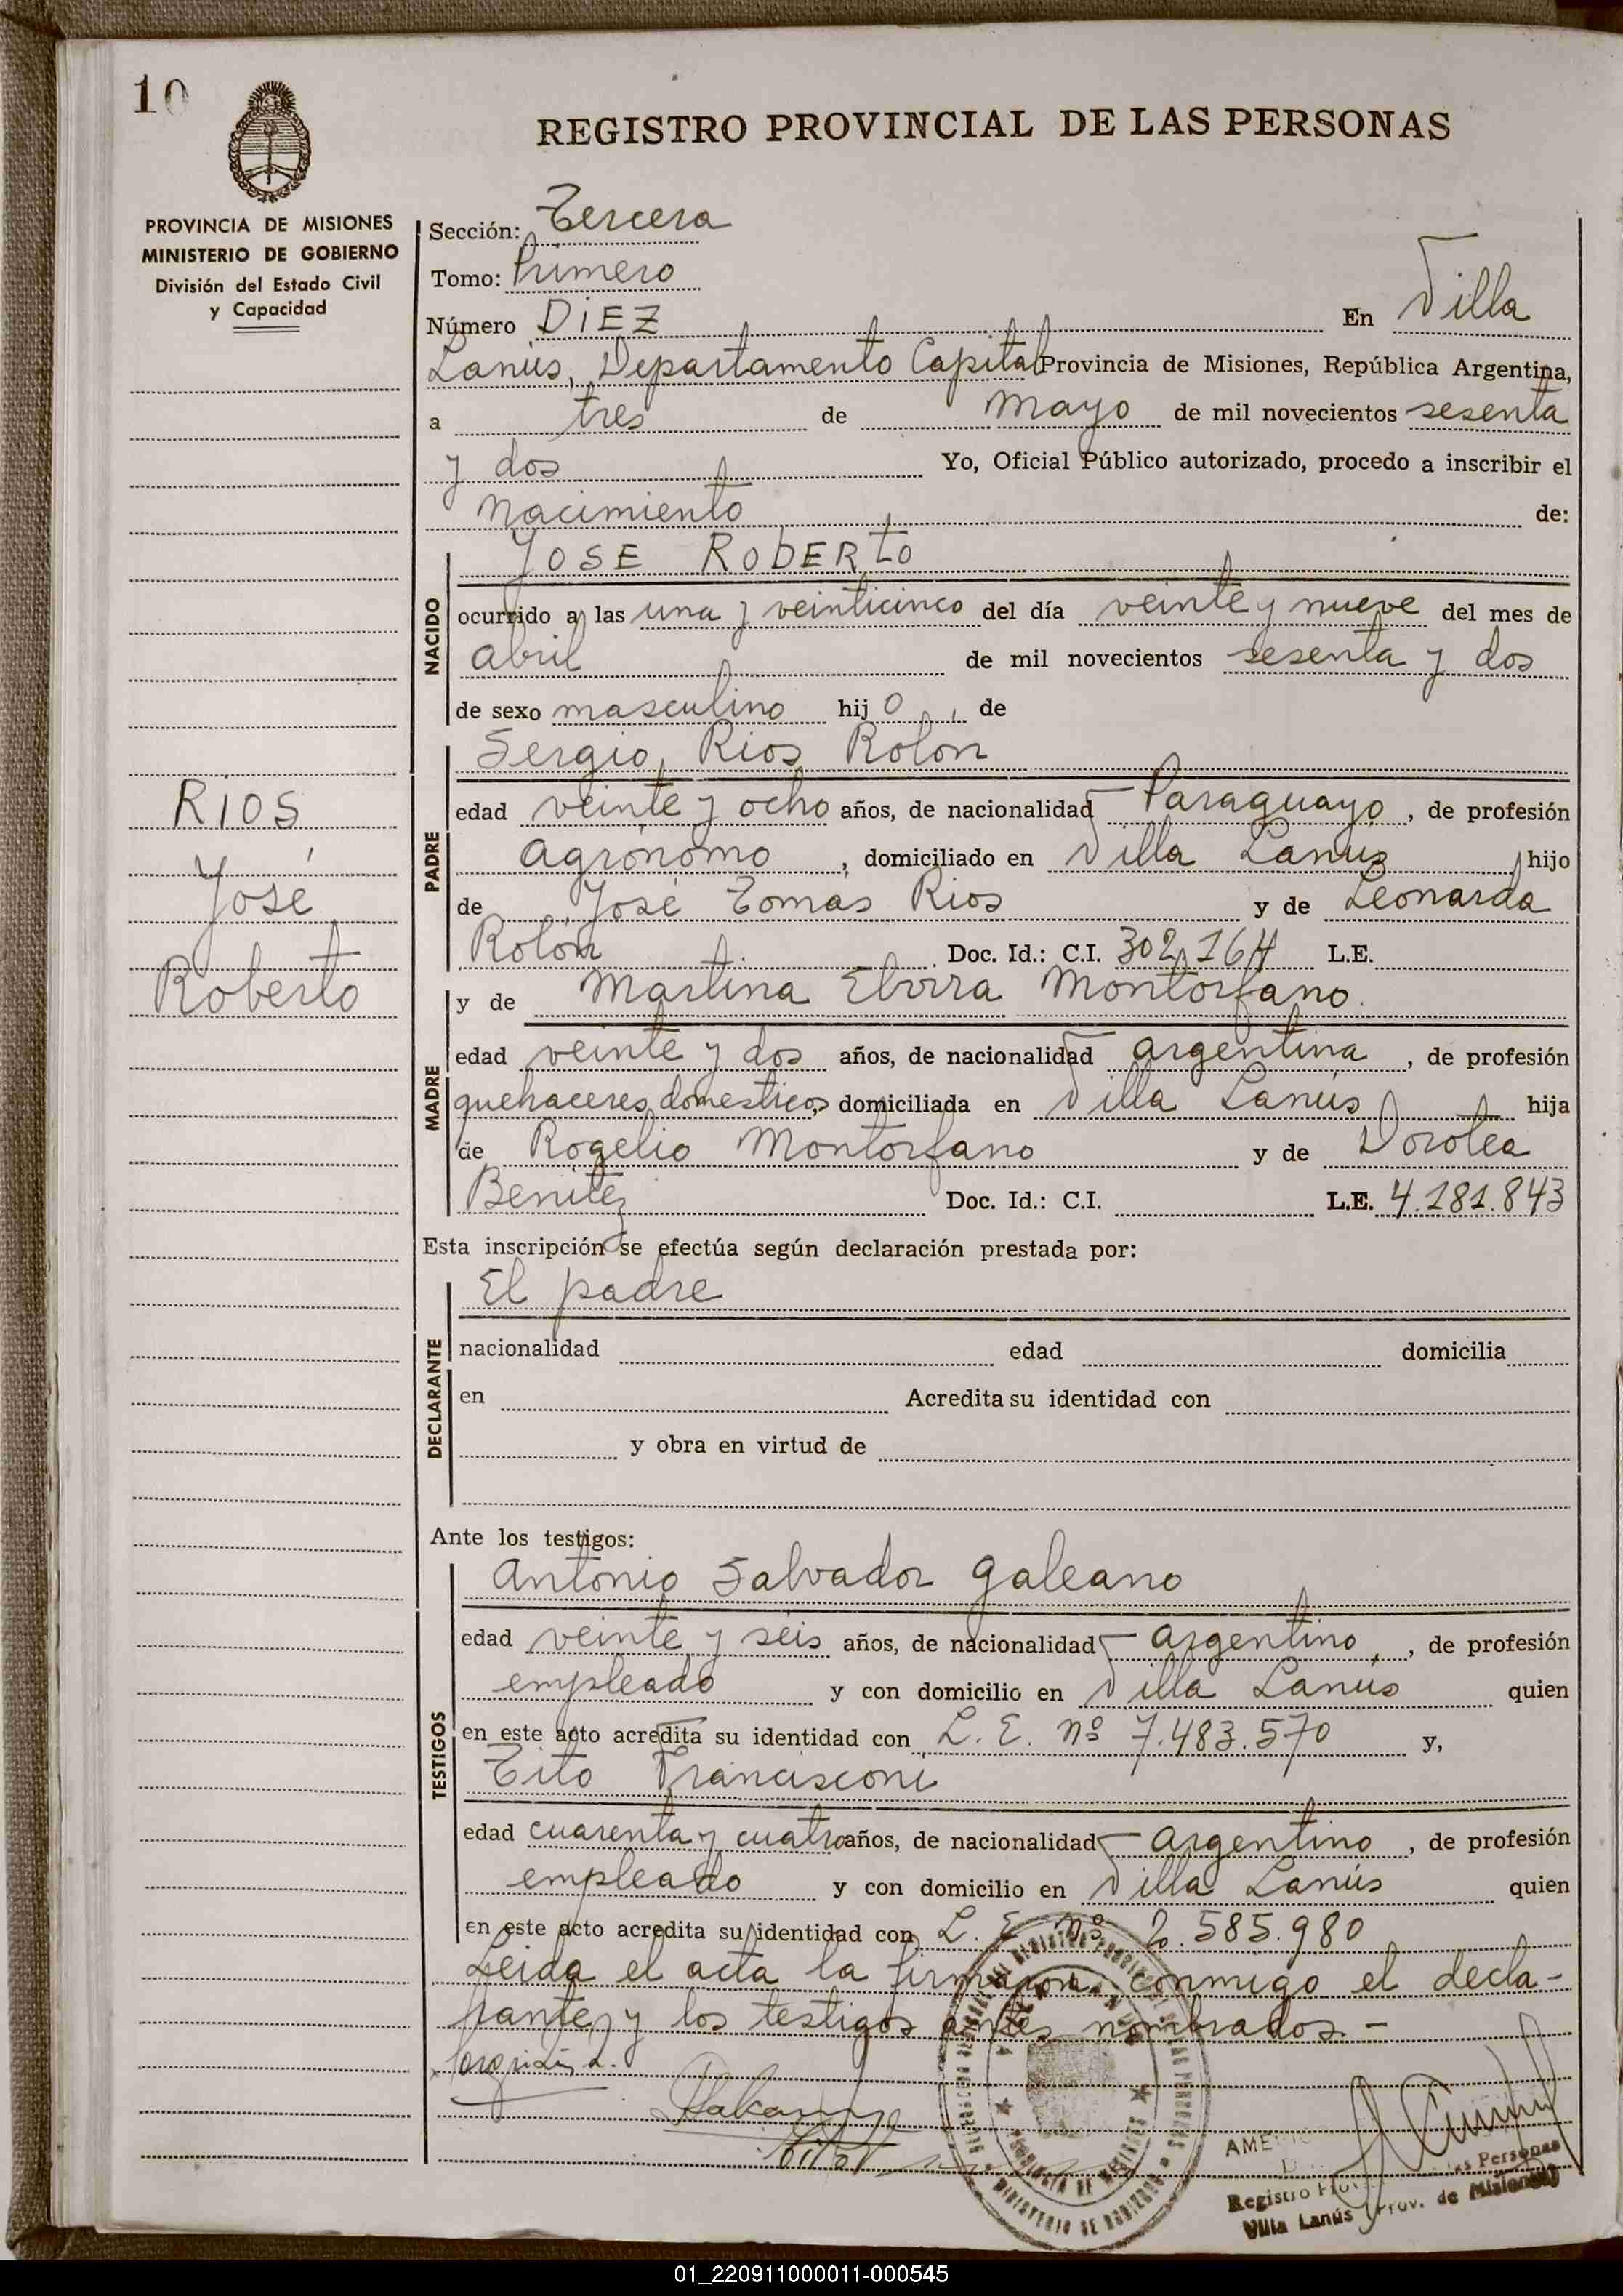 10
REGISTRO PROVINCIAL DE LAS PERSONAS
PROVINCIA DE MISIONES
MINISTERIO DE GOBIERNO
División del Estado Civil
y Capacidad
Sección: Tercera
Tomo: Primero
Número DIEZ En Villa
Lanús, Departamento Capital Provincia de Misiones, República Argentina,
a tres de mayo de mil novecientos sesenta
y dos Yo, Oficial Público autorizado, procedo a inscribir el
nacimiento de:
NACIDO
JOSE ROBERTO
ocurrido a las una y veinticinco del día veinte y nueve del mes de
abril de mil novecientos sesenta y dos
de sexo masculino hijo, de
RIOS
José
Roberto
PADRE
Sergio Rios Rolon
edad veinte y ocho años, de nacionalidad Paraguayo, de profesión
agrónomo, domiciliado en Villa Lanus hijo
de José Tomás Rios y de Leonarda
Rolón Doc. Id.: C.I. 302.164 L.E.
MADRE
y de Martina Elvira Montorfano.
edad veinte y dos años, de nacionalidad argentina, de profesión
quehaceres domesticos, domiciliada en Villa Lanús hija
de Rogelio Montorfano y de Dorotea
Benitez Doc. Id.: C.I. L.E. 4.181.843
Esta inscripción se efectúa según declaración prestada por:
DECLARANTE
El padre
nacionalidad edad domicilia
en Acredita su identidad con
y obra en virtud de
Ante los testigos:
TESTIGOS
Antonio Salvador Galeano
edad veinte y seis años, de nacionalidad argentino, de profesión
empleado y con domicilio en Villa Lanús quien
en este acto acredita su identidad con L. E. Nº 7.483.570 y,
Tito Francisconi
edad cuarenta y cuatro años, de nacionalidad argentino, de profesión
empleado y con domicilio en Villa Lanús quien
en este acto acredita su identidad con L. E. Nº 2.585.980
Leida el acta la firmaron conmigo el decla-
rante y los testigos antes nombrados.-
MINISTERIO DE GOBIERNO
PROVINCIA DE MISIONES
Registro Personas
Villa Lanús Prov. de Misiones
01_220911000011-000545